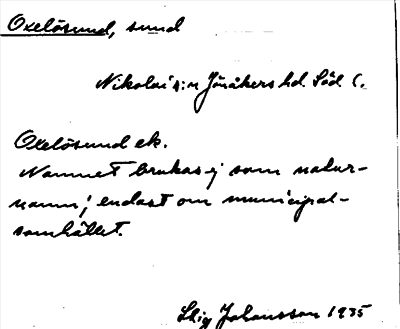 Oxelösund, sund
Nikolai s:n Jönåkers hd. Söd l.
Oxelösund ek.
Namnet brukas ej som natur-
namn; endast om municipal-
samhället.
Stig Johansson 1935